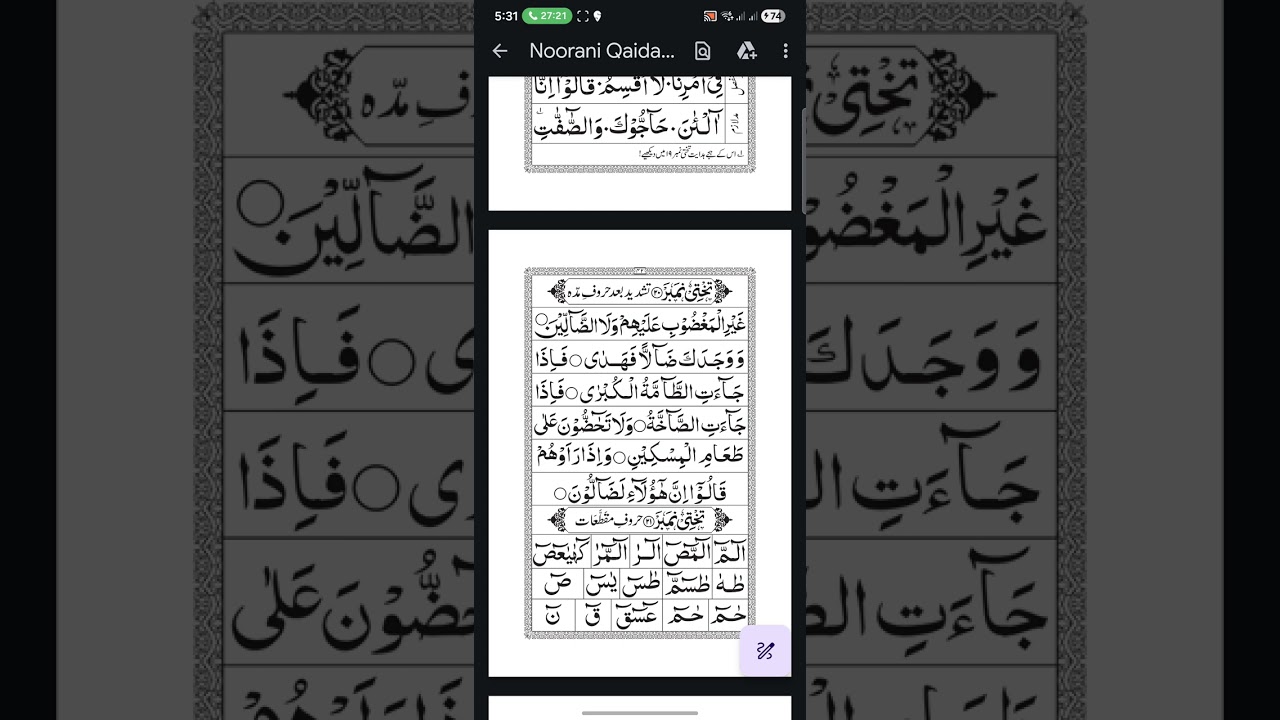 5:31 27:21 74
Noorani Qaida...
فِیْۤ اَمْرِنَا۔ لَاۤ اُقْسِمُ۔ قَالُوْۤا اِنَّا
آٰلْـٰٔنَ۔ حَآجُّوْكَ۔ وَالصّٰٓفّٰتِ
اس کے ہجے ہدایت تختی نمبر ۱۹ میں دیکھیے!
تختی نمبر ۲۰ تشدید بعد حروفِ مدّہ
غَیْرِ الْمَغْضُوْبِ عَلَیْهِمْ وَلَا الضَّآلِّیْنَ ○
وَ وَجَدَكَ ضَآلًّا فَهَدٰی ○ فَاِذَا
جَآءَتِ الطَّآمَّةُ الْكُبْرٰی ○ فَاِذَا
جَآءَتِ الصَّآخَّةُ ○ وَلَا تَحٰٓضُّوْنَ عَلٰی
طَعَامِ الْمِسْكِیْنِ ○ وَاِذَا رَاَوْهُمْ
قَالُوْۤا اِنَّ هٰۤؤُلَآءِ لَضَآلُّوْنَ ○
تختی نمبر ۲۱ حروفِ مقطّعات
الٓمّٓ الٓمّٓصٓ الٓرٰ الٓمّٓرٰ كٓهٰیٰعٓصٓ
طٰهٰ طٰسٓمّٓ طٰسٓ یٰسٓ صٓ
حٰمٓ حٰمٓ عٓسٓقٓ قٓ نٓ